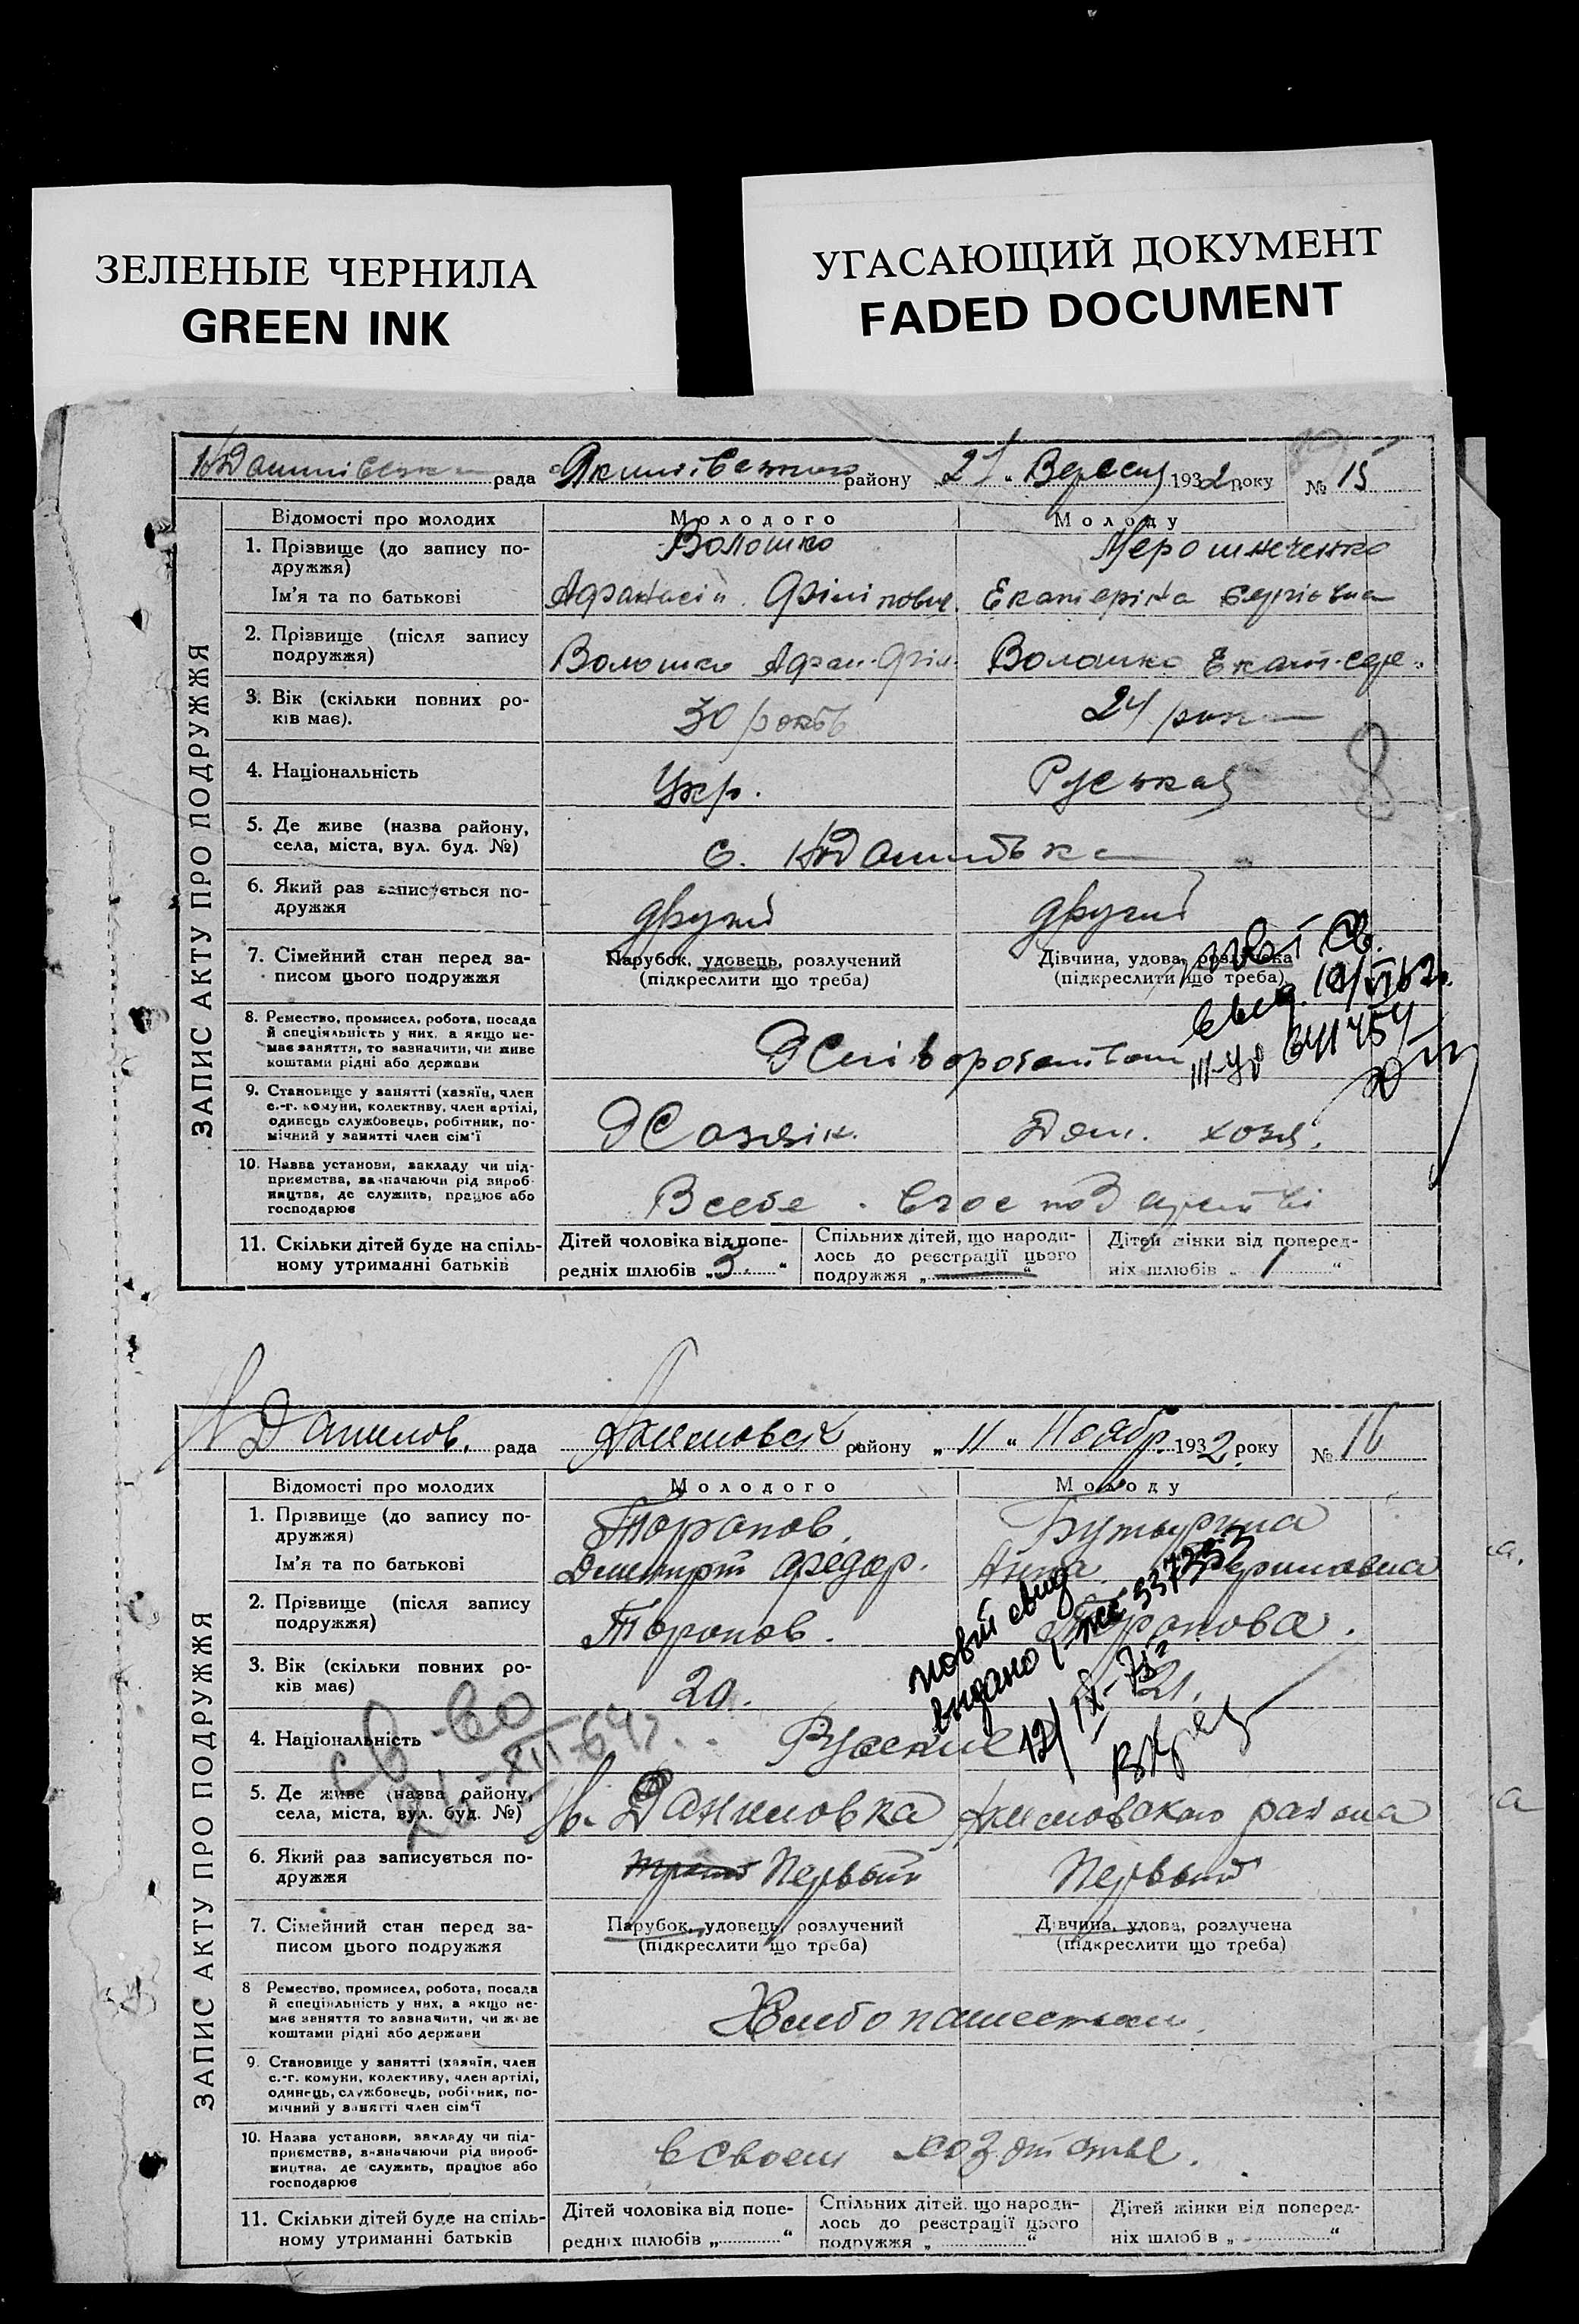 ЗЕЛЕНЫЕ ЧЕРНИЛА
GREEN INK
УГАСАЮЩИЙ ДОКУМЕНТ
FADED DOCUMENT
рада району Вересня 1932 року № 15
ЗАПИС АКТУ ПРО ПОДРУЖЖЯ
Відомості про молодих
Молодого
Молоду
1. Прізвище (до запису по-
дружжя)
Волошко
Ім'я та по батькові
2. Прізвище (після запису
подружжя)
Волошко
Волошко
3. Вік (скільки повних ро-
ків має).
30 років
24 роки
4. Національність
Укр.
Руская
5. Де живе (назва району,
села, міста, вул. буд. №)
6. Який раз записується по-
дружжя
другий
другий
7. Сімейний стан перед за-
писом цього подружжя
Парубок, удовець, розлучений
(підкреслити що треба)
Дівчина, удова, розлучена
(підкреслити що треба)
8. Ремество, промисел, робота, посада
й спеціяльність у них, а якщо не-
має заняття, то зазначити, чи живе
коштами рідні або держави
9. Становище у занятті (хазяїн, член
с.-г. комуни, колективу, член артілі,
одинець службовець, робітник, по-
мічний у занятті член сім'ї
10. Назва установи, закладу чи під-
приємства, зазначаючи рід вироб-
ництва, де служить, працює або
господарює
11. Скільки дітей буде на спіль-
ному утриманні батьків
Дітей чоловіка від попе-
редніх шлюбів „3“
Спільних дітей, що народи-
лось до реєстрації цього
подружжя „—“
Дітей жінки від поперед-
ніх шлюбів „1“
Н Данилов. рада району „11“ Ноябр. 1932 року № 16
ЗАПИС АКТУ ПРО ПОДРУЖЖЯ
Відомості про молодих
Молодого
Молоду
1. Прізвище (до запису по-
дружжя)
Торопов.
Бутырина
Ім'я та по батькові
Дмитрий Федор.
Анна
2. Прізвище (після запису
подружжя)
Торопов.
Торопова.
новий свид
видано
3. Вік (скільки повних ро-
ків має)
20.
21.
4. Національність
Русские
5. Де живе (назва району,
села, міста, вул. буд. №)
Н. Даниловка Акимовского района
6. Який раз записується по-
дружжя
Первый
Первый
7. Сімейний стан перед за-
писом цього подружжя
Парубок, удовець, розлучений
(підкреслити що треба)
Дівчина, удова, розлучена
(підкреслити що треба)
8 Ремество, промисел, робота, посада
й спеціяльність у них, а якщо не-
має заняття то зазначити, чи живе
коштами рідні або держави
9. Становище у занятті (хазяїн, член
с.-г. комуни, колективу, член артілі,
одинець, службовець, робітник, по-
мічний у занятті член сім'ї
10. Назва установи, закладу чи під-
приємства, зазначаючи рід вироб-
ництва, де служить, працює або
господарює
в своем
11. Скільки дітей буде на спіль-
ному утриманні батьків
Дітей чоловіка від попе-
редніх шлюбів „“
Спільних дітей, що народи-
лось до реєстрації цього
подружжя „“
Дітей жінки від поперед-
ніх шлюбів „“